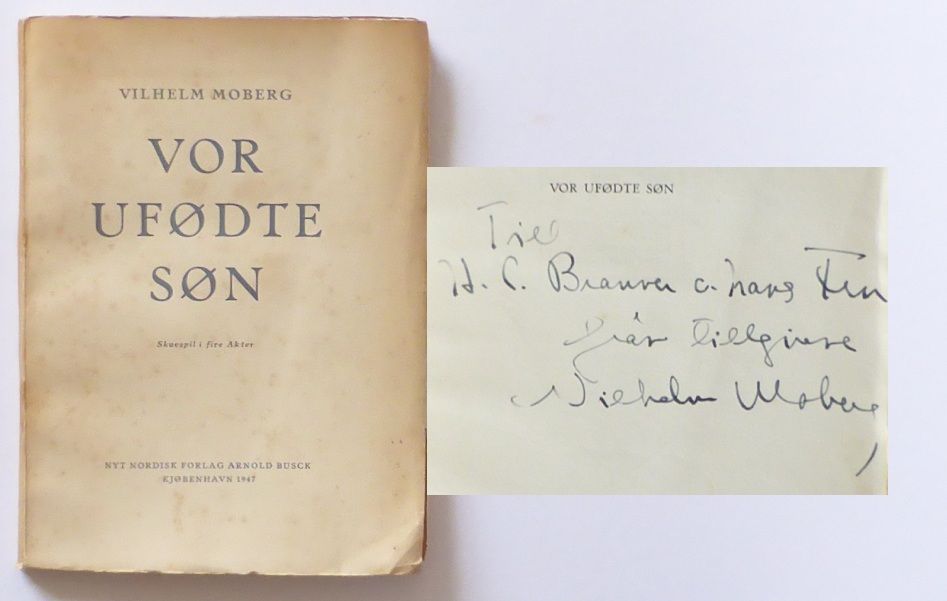 VILHELM MOBERG
VOR
UFØDTE
SØN
Skuespil i fire Akter
NYT NORDISK FORLAG ARNOLD BUSCK
KJØBENHAVN 1947
VOR UFØDTE SØN
Till
H. C. Branner o. hans Fru
från tillgivne
Vilhelm Moberg